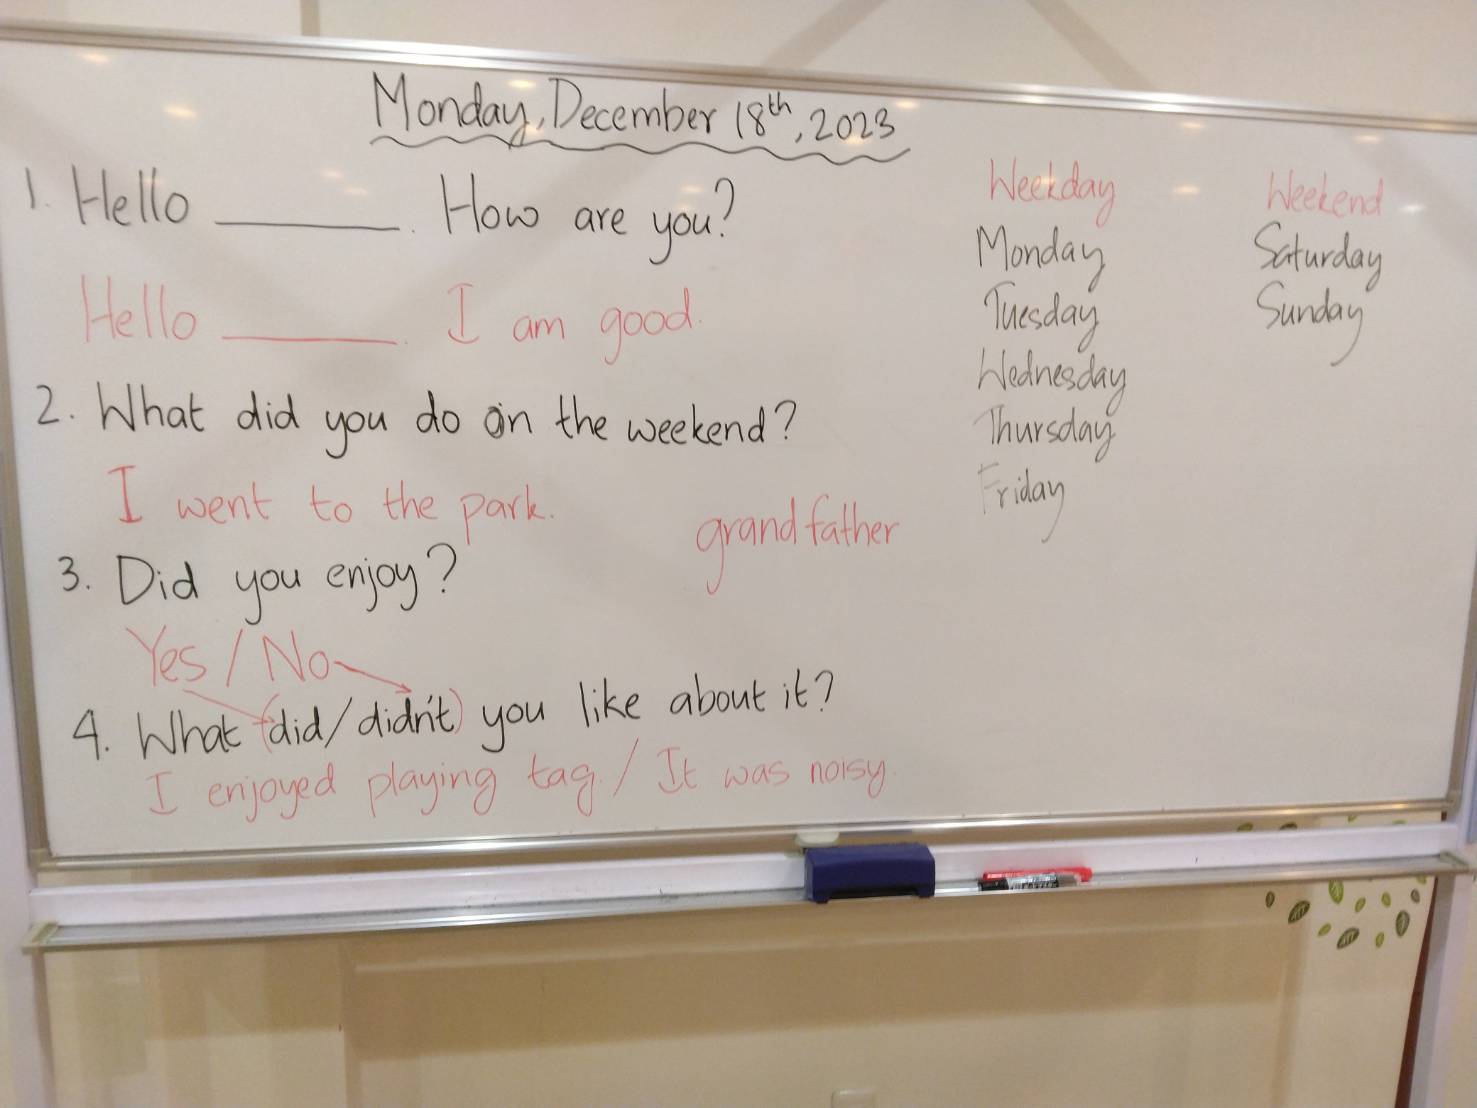 Monday, December 18th, 2023
1. Hello ________. How are you?
Hello ________. I am good.
2. What did you do on the weekend?
I went to the park.
grandfather
3. Did you enjoy?
Yes / No
4. What (did/didn't) you like about it?
I enjoyed playing tag. / It was noisy.
Weekday
Monday
Tuesday
Wednesday
Thursday
Friday
Weekend
Saturday
Sunday